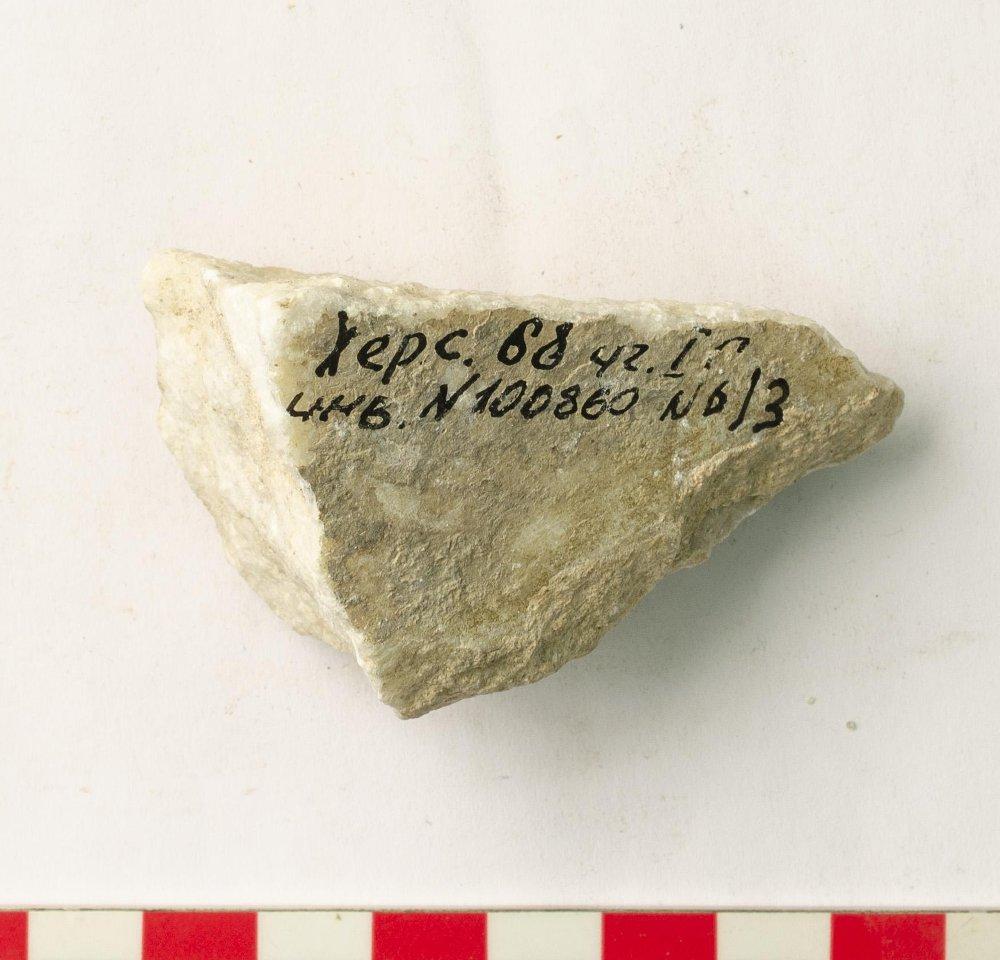 Херс. 68 уг. I п
инв. N 100860 N б/3